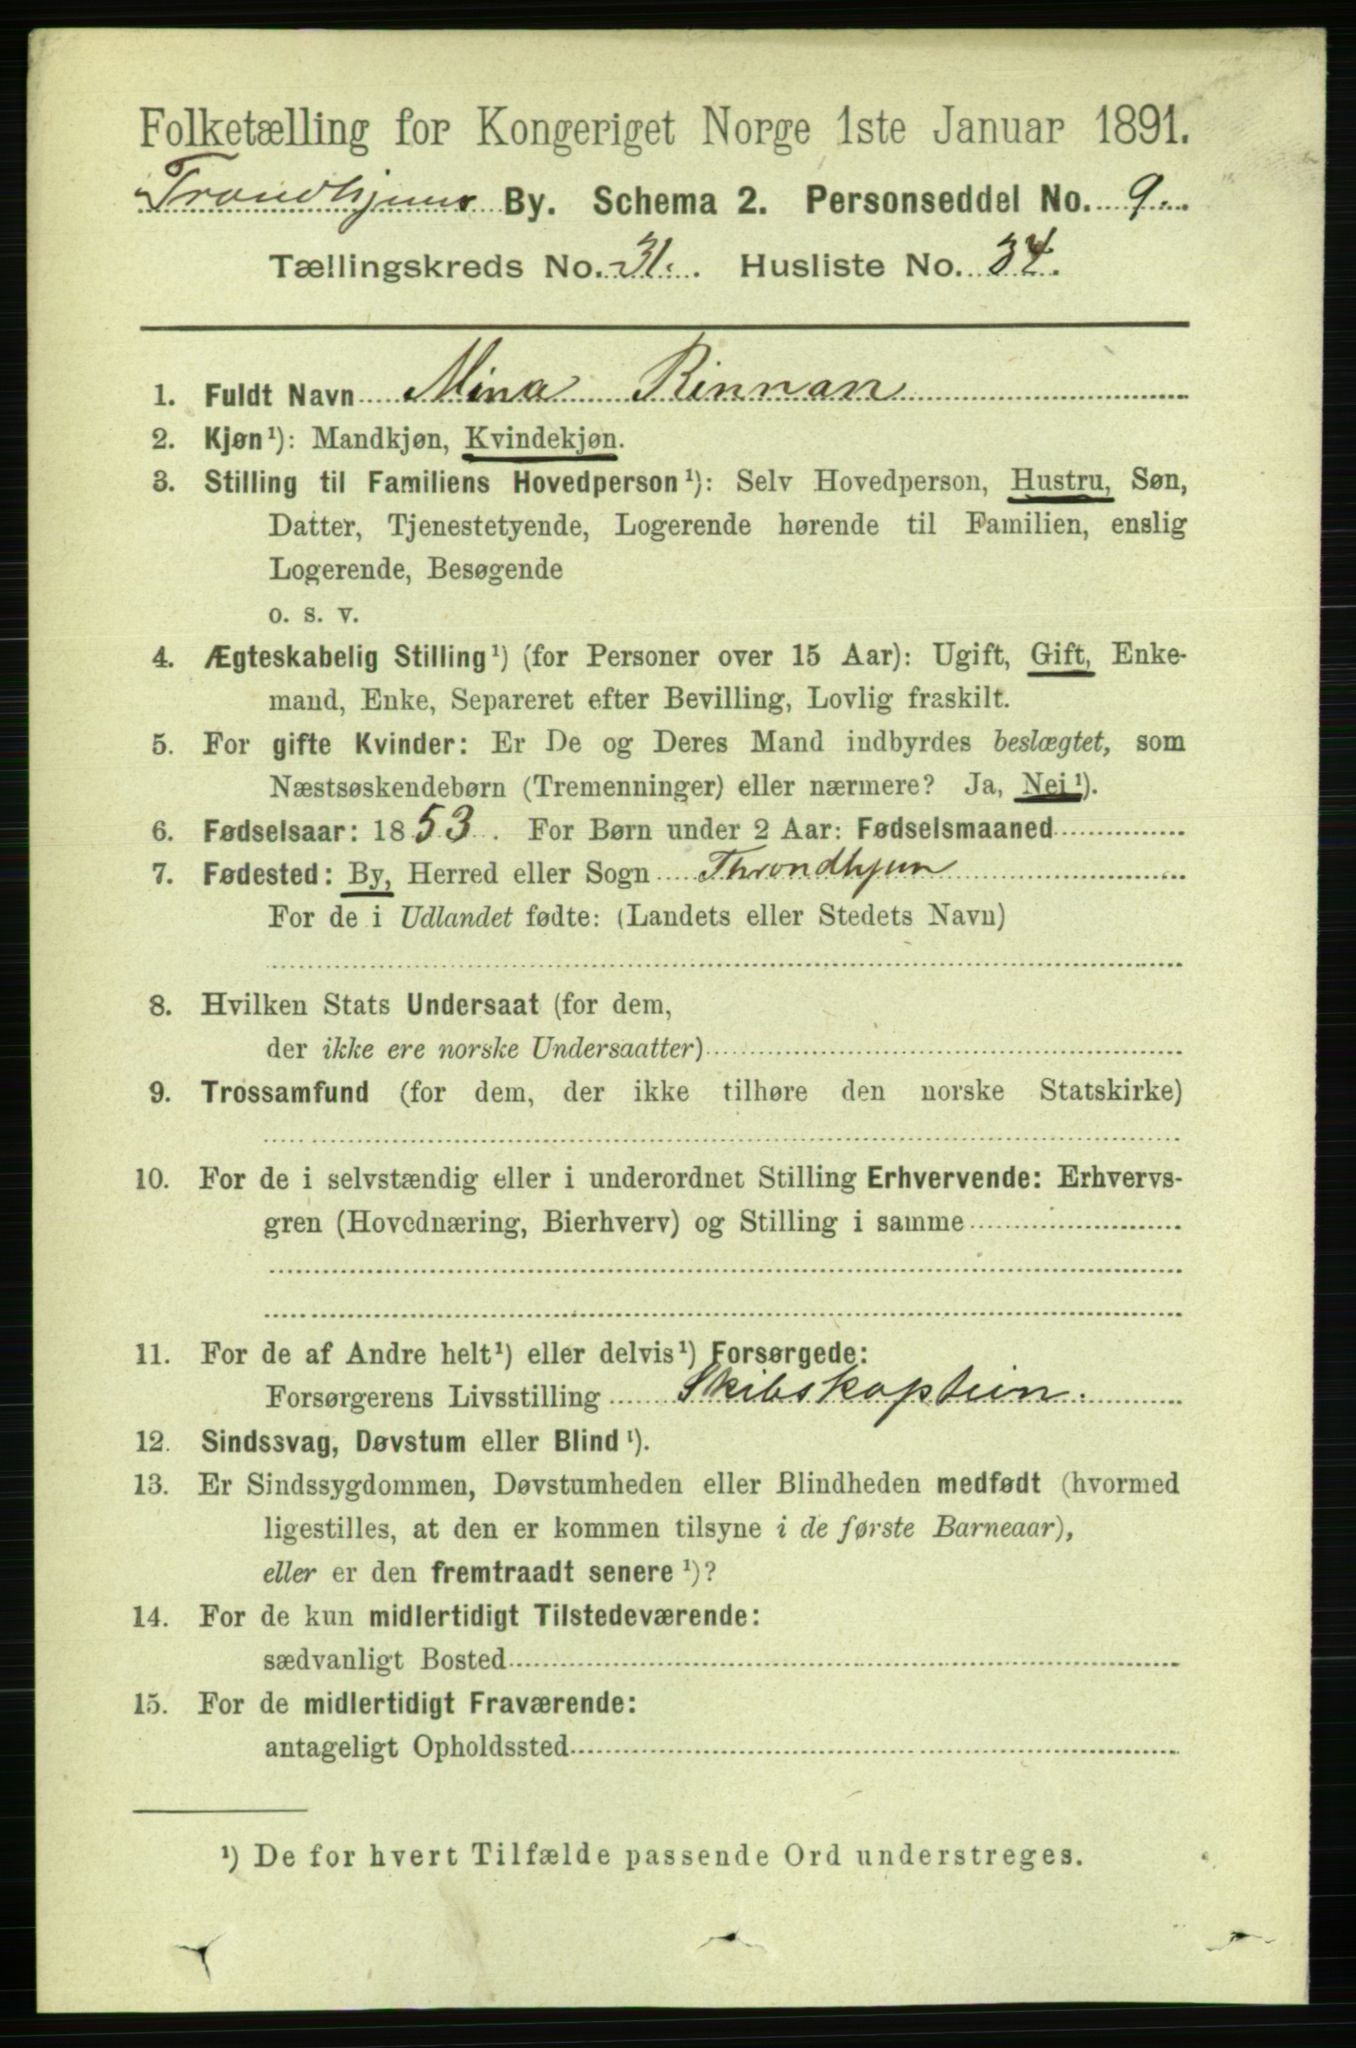 Folketælling for Kongeriget Norge 1ste Januar 1891.
Trondhjems By. Schema 2. Personseddel No. 9.
Tællingskreds No. 31. Husliste No. 34.
1. Fuldt Navn Mina Rinnan
2. Kjøn¹): Mandkjøn, Kvindekjøn.
3. Stilling til Familiens Hovedperson¹): Selv Hovedperson, Hustru, Søn,
Datter, Tjenestetyende, Logerende hørende til Familien, enslig
Logerende, Besøgende
o. s. v.
4. Ægteskabelig Stilling¹) (for Personer over 15 Aar): Ugift, Gift, Enke-
mand, Enke, Separeret efter Bevilling, Lovlig fraskilt.
5. For gifte Kvinder: Er De og Deres Mand indbyrdes beslægtet, som
Næstsøskendebørn (Tremenninger) eller nærmere? Ja, Nej¹).
6. Fødselsaar: 1853. For Børn under 2 Aar: Fødselsmaaned
7. Fødested: By, Herred eller Sogn Throndhjem
For de i Udlandet fødte: (Landets eller Stedets Navn)
8. Hvilken Stats Undersaat (for dem,
der ikke ere norske Undersaatter)
9. Trossamfund (for dem, der ikke tilhøre den norske Statskirke)
10. For de i selvstændig eller i underordnet Stilling Erhvervende: Erhvervs-
gren (Hovednæring, Bierhverv) og Stilling i samme
11. For de af Andre helt¹) eller delvis¹) Forsørgede:
Forsørgerens Livsstilling Skibskaptein.
12. Sindssvag, Døvstum eller Blind¹).
13. Er Sindssygdommen, Døvstumheden eller Blindheden medfødt (hvormed
ligestilles, at den er kommen tilsyne i de første Barneaar),
eller er den fremtraadt senere¹)?
14. For de kun midlertidigt Tilstedeværende:
sædvanligt Bosted
15. For de midlertidigt Fraværende:
antageligt Opholdssted
¹) De for hvert Tilfælde passende Ord understreges.